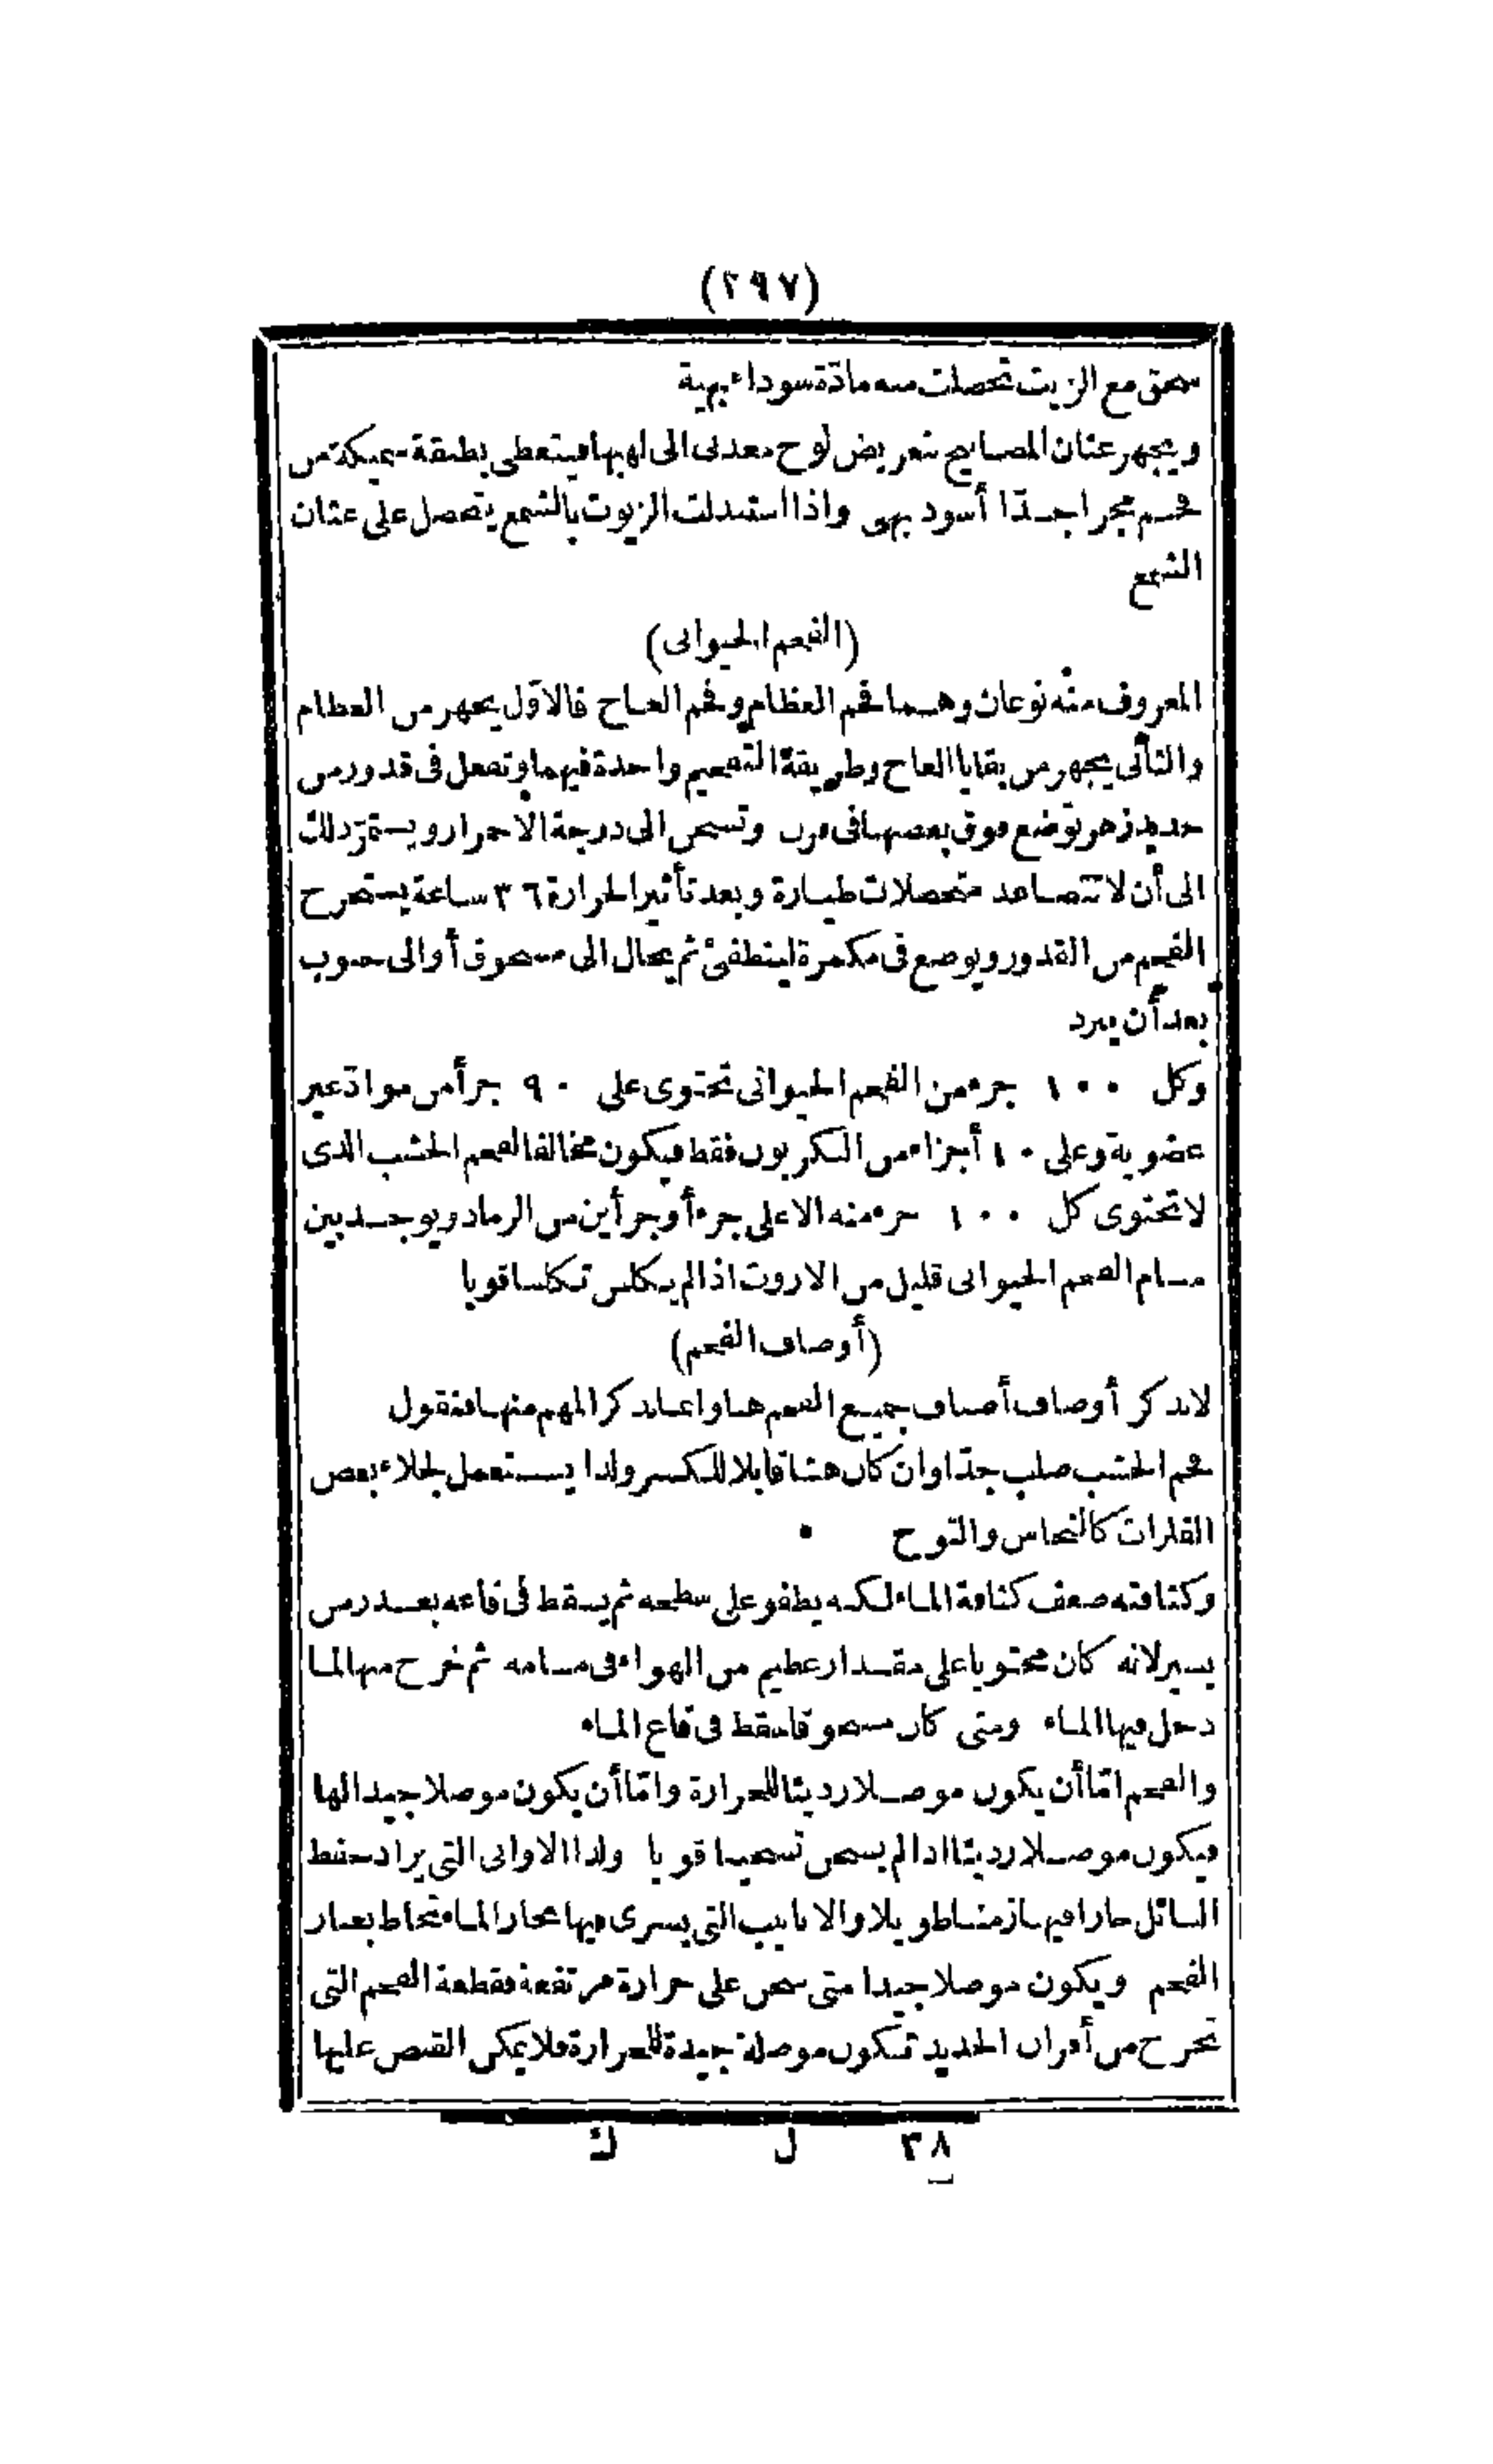 (٢٩٧)
سحق مع الزيت تحصلت منه مادّة سوداء بهية
ويجهز عثان المصابيح بتعريض لوح معدنى الى لهبها فيتغطى بطبقة سميكة من
فحم مجزا جدّا أسود بهى واذا استبدلت الزيوت بالشمع يتحصل على عثان
الشمع
(الفحم الحيوانى)
المعروف منه نوعان وهما فحم العظام وفحم العاج فالاوّل يجهز من العظام
والثانى يجهز من بقايا العاج وطريقة التفحيم واحدة فيهما وتفعل فى قدور من
حديد زهر توضع فوق بعضها فى فرن وتسخن الى درجة الاحمرار ويستمرّ ذلك
الى أن لا تتصاعد متحصلات طيارة وبعد تأثير الحرارة ٣٦ ساعة يستخرج
الفحم من القدور ويوضع فى مكمرة لينطفئ ثم يحال الى مسحوق أو الى حبوب
بعد أن يبرد
وكل ١٠٠ جزء من الفحم الحيوانى تحتوى على ٩٠ جزأ من موادّ غير
عضوية وعلى ١٠ أجزاء من الكربون فقط فيكون مخالفا لفحم الخشب الذى
لا تحتوى كل ١٠٠ جزء منه الا على جزء أو جزأين من الرماد ويوجد بين
مسام الفحم الحيوانى قليل من الازوت اذا لم يكلس تكلسا قويا
(أوصاف الفحم)
لا نذكر أوصاف أصناف جميع الفحم هنا وانما نذكر المهم منها فنقول
فحم الخشب صلب جدّا وان كان هشا قابلا للكسر ولذا يستعمل لجلاء بعض
الفلزات كالنحاس والتوج
وكثافته ضعف كثافة الماء لكنه يطفو على سطحه ثم يسقط فى قاعه بعد زمن
يسير لانه كان محتويا على مقدار عظيم من الهواء فى مسامه ثم خرج منها لما
دخل فيها الماء ومتى كان مسحوقا سقط فى قاع الماء
والفحم امّا أن يكون موصلا رديئا للحرارة وامّا أن يكون موصلا جيدا لها
فيكون موصلا رديئا اذا لم يسخن تسخينا قويا ولذا الاوانى التى يراد حفظ
السائل حارا فيها زمنا طويلا والانابيب التى يسرى فيها بخار الماء تحاط بغبار
الفحم ويكون موصلا جيدا متى سخن على حرارة مرتفعة فقطعة الفحم التى
تخرج من أفران الحديد تكون موصلة جيدة للحرارة فلا يمكن القبض عليها
٣٨ ل ك